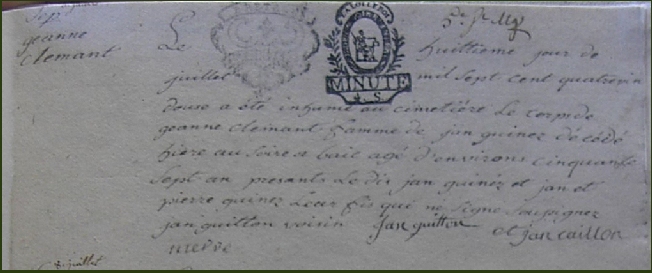 geanne
clemant
Le huittieme jour de
juillet mil sept cent quatrevin
douse a été inhumé au cimetiére Le corp de
geanne clemant famme de jan guinez décédé
hiere au soire a bail agé d'environs cinquante
sept an presants Le dis jan guinez et jan et
pierre guinez Leur fis qui ne signe sousignez
jan guitton voisin jan guitton et jan caillon
MINUTE
S